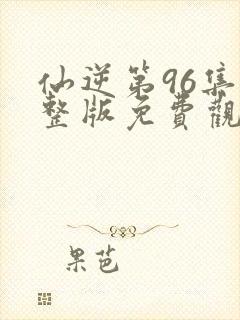 仙逆第96集
整版免費觀
果芭